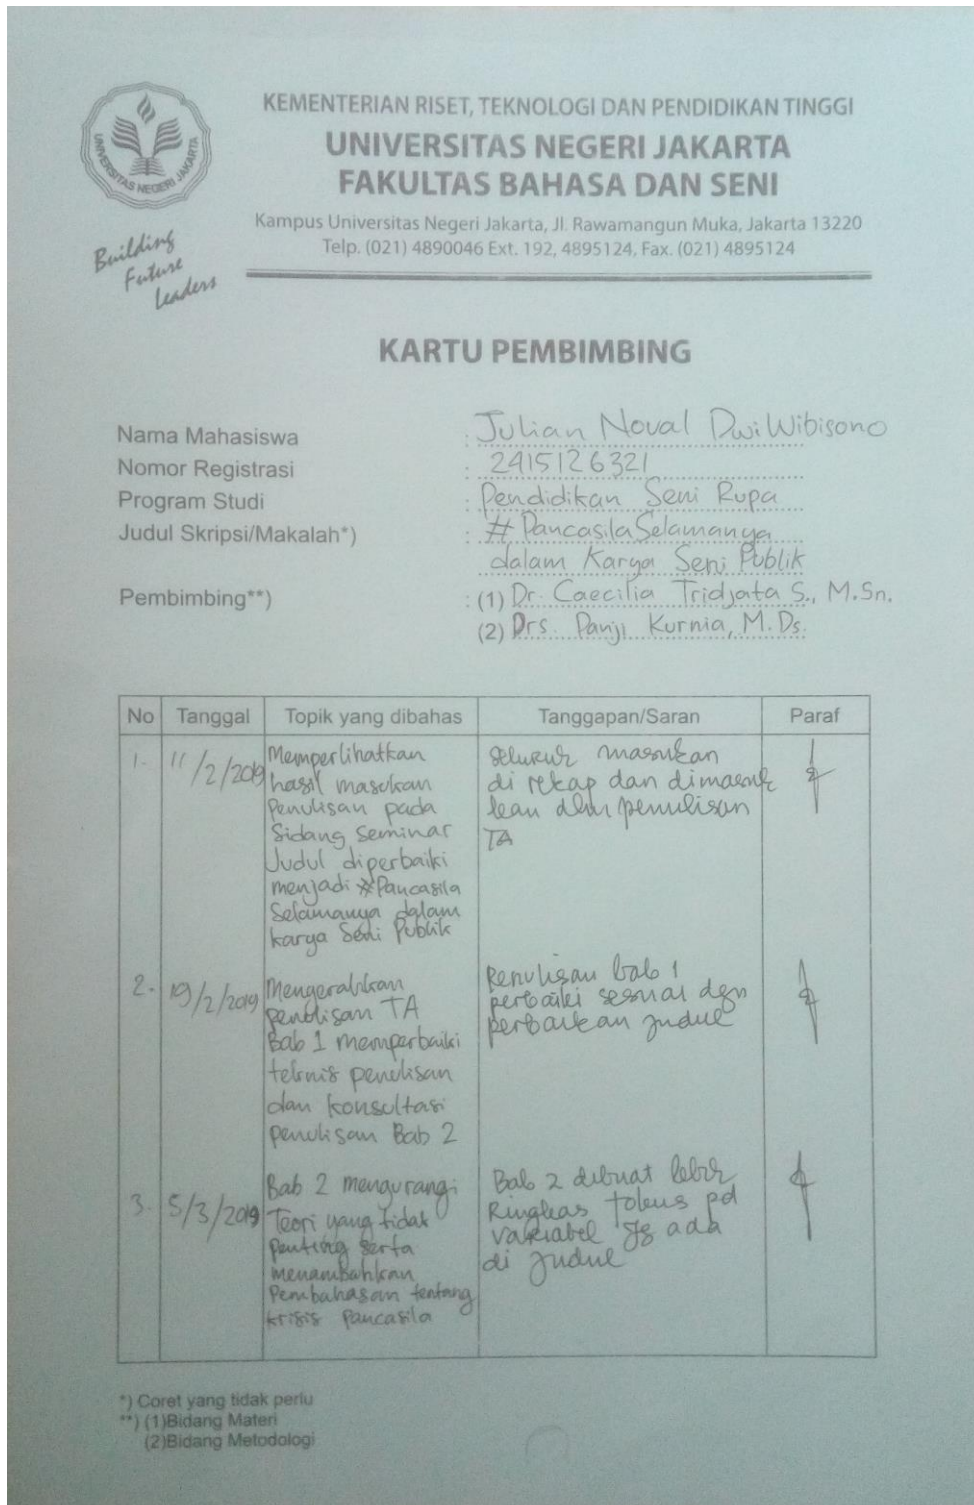 KEMENTERIAN RISET, TEKNOLOGI DAN PENDIDIKAN TINGGI
UNIVERSITAS NEGERI JAKARTA
FAKULTAS BAHASA DAN SENI
Kampus Universitas Negeri Jakarta, Jl. Rawamangun Muka, Jakarta 13220
Telp. (021) 4890046 Ext. 192, 4895124, Fax. (021) 4895124
UNIVERSITAS NEGERI JAKARTA
Building
Future
Leaders
KARTU PEMBIMBING
Nama Mahasiswa : Julian Noval Dwi Wibisono
Nomor Registrasi : 2415126321
Program Studi : Pendidikan Seni Rupa
Judul Skripsi/Makalah*) : #PancasilaSelamanya
dalam Karya Seni Publik
Pembimbing**) : (1) Dr. Caecilia Tridjata S., M.Sn.
(2) Drs. Panji Kurnia, M.Ds.
No Tanggal Topik yang dibahas Tanggapan/Saran Paraf
1. 11/2/2019
Memperlihatkan
hasil masukan
Penulisan pada
Sidang Seminar
Judul diperbaiki
menjadi #Pancasila
Selamanya dalam
karya Seni Publik
seluruh masukan
di rekap dan dimasuk
kan dlm penulisan
TA
2. 19/2/2019
Mengerahkan
penulisan TA
Bab 1 memperbaiki
teknis penulisan
dan konsultasi
penulisan Bab 2
Penulisan bab 1
perbaiki sesuai dgn
perbaikan judul
3. 5/3/2019
Bab 2 mengurangi
Teori yang tidak
penting serta
menambahkan
Pembahasan tentang
krisis Pancasila
Bab 2 dibuat lebih
Ringkas fokus pd
variabel yg ada
di judul
*) Coret yang tidak perlu
**) (1)Bidang Materi
(2)Bidang Metodologi